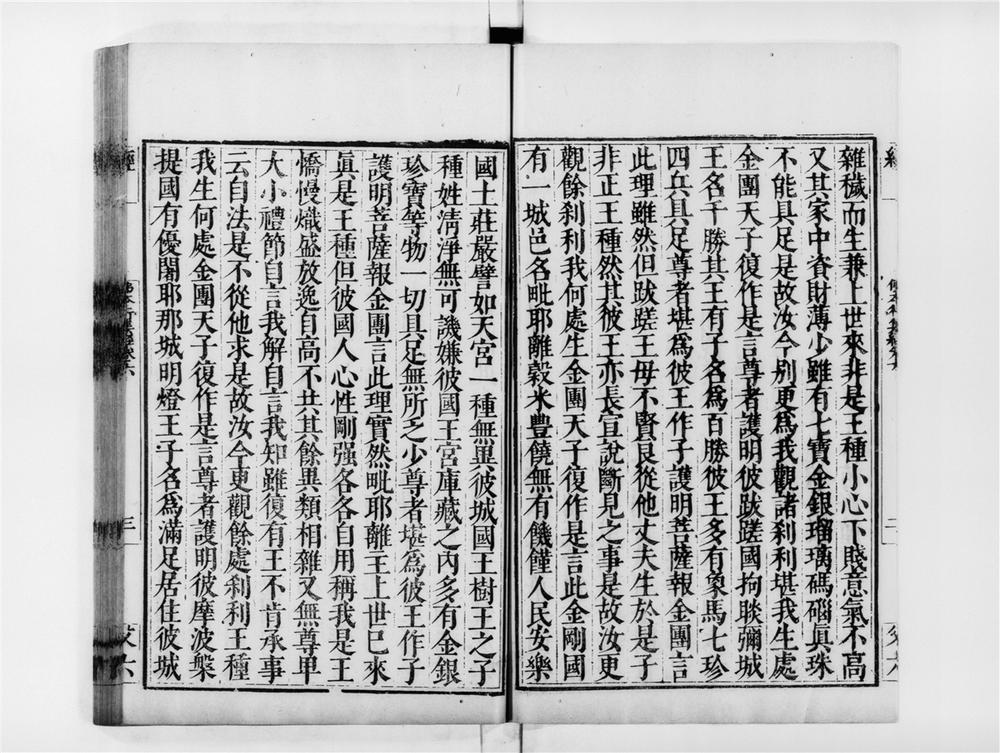 雜穢而生兼上世來非是王種小心下賤意氣不高
又其家中資財薄少雖有七寶金銀瑠璃碼碯眞珠
不能具足是故汝今別更爲我觀諸刹利堪我生處
金團天子復作是言尊者護明彼跋蹉國拘睒彌城
王名千勝其王有子名爲百勝彼王多有象馬七珍
四兵具足尊者堪爲彼王作子護明菩薩報金團言
此理雖然但跋蹉王母不賢良從他丈夫生於是子
非正王種然其彼王亦長宣說斷見之事是故汝更
觀餘刹利我何處生金團天子復作是言此金剛國
有一城邑名毗耶離穀米豐饒無有饑饉人民安樂
國土莊嚴譬如天宮一種無異彼城國王樹王之子
種姓淸淨無可譏嫌彼國王宮庫藏之內多有金銀
珍寶等物一切具足無所乏少尊者堪爲彼王作子
護明菩薩報金團言此理實然毗耶離王上世已來
眞是王種但彼國人心性剛强各各自用稱我是王
憍慢熾盛放逸自高不共其餘異類相雜又無尊卑
大小禮節自言我解自言我知雖復有王不肯承事
云自法是不從他求是故汝今更觀餘處刹利王種
我生何處金團天子復作是言尊者護明彼摩波槃
提國有優闍耶那城明燈王子名爲滿足居住彼城
經
三
㸚六
二